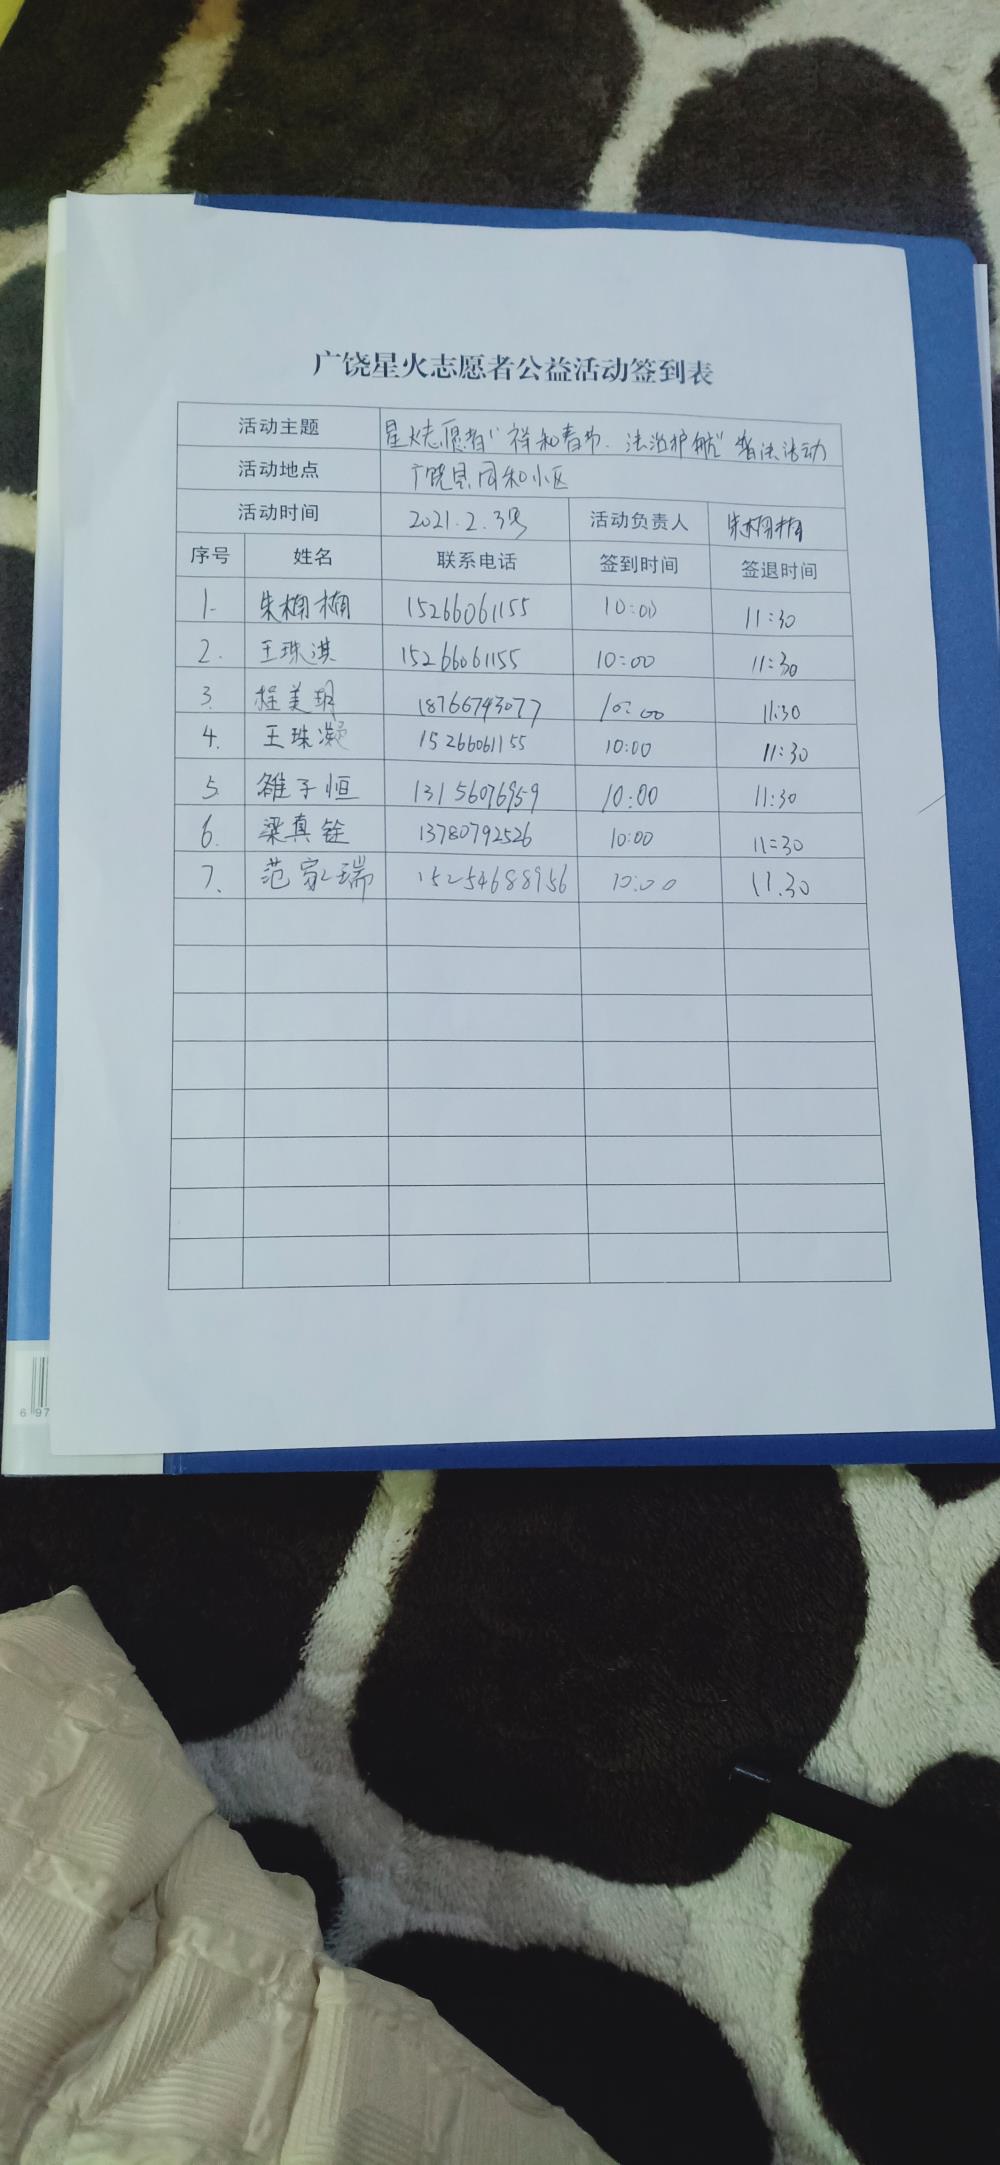 广饶星火志愿者公益活动签到表
活动主题 星火志愿者“祥和春节、法治护航”普法活动
活动地点 广饶县同和小区
活动时间 2021.2.3号 活动负责人 朱栩栩
序号 姓名 联系电话 签到时间 签退时间
1. 朱栩栩 15266061155 10:00 11:30
2. 王珠淇 15266061155 10:00 11:30
3. 程美玥 18766743077 10:00 11:30
4. 王珠凝 15266061155 10:00 11:30
5 子恒 13156076959 10:00 11:30
6. 梁真铨 13780792526 10:00 11:30
7. 范家瑞 15254688956 10:00 11.30
6 97